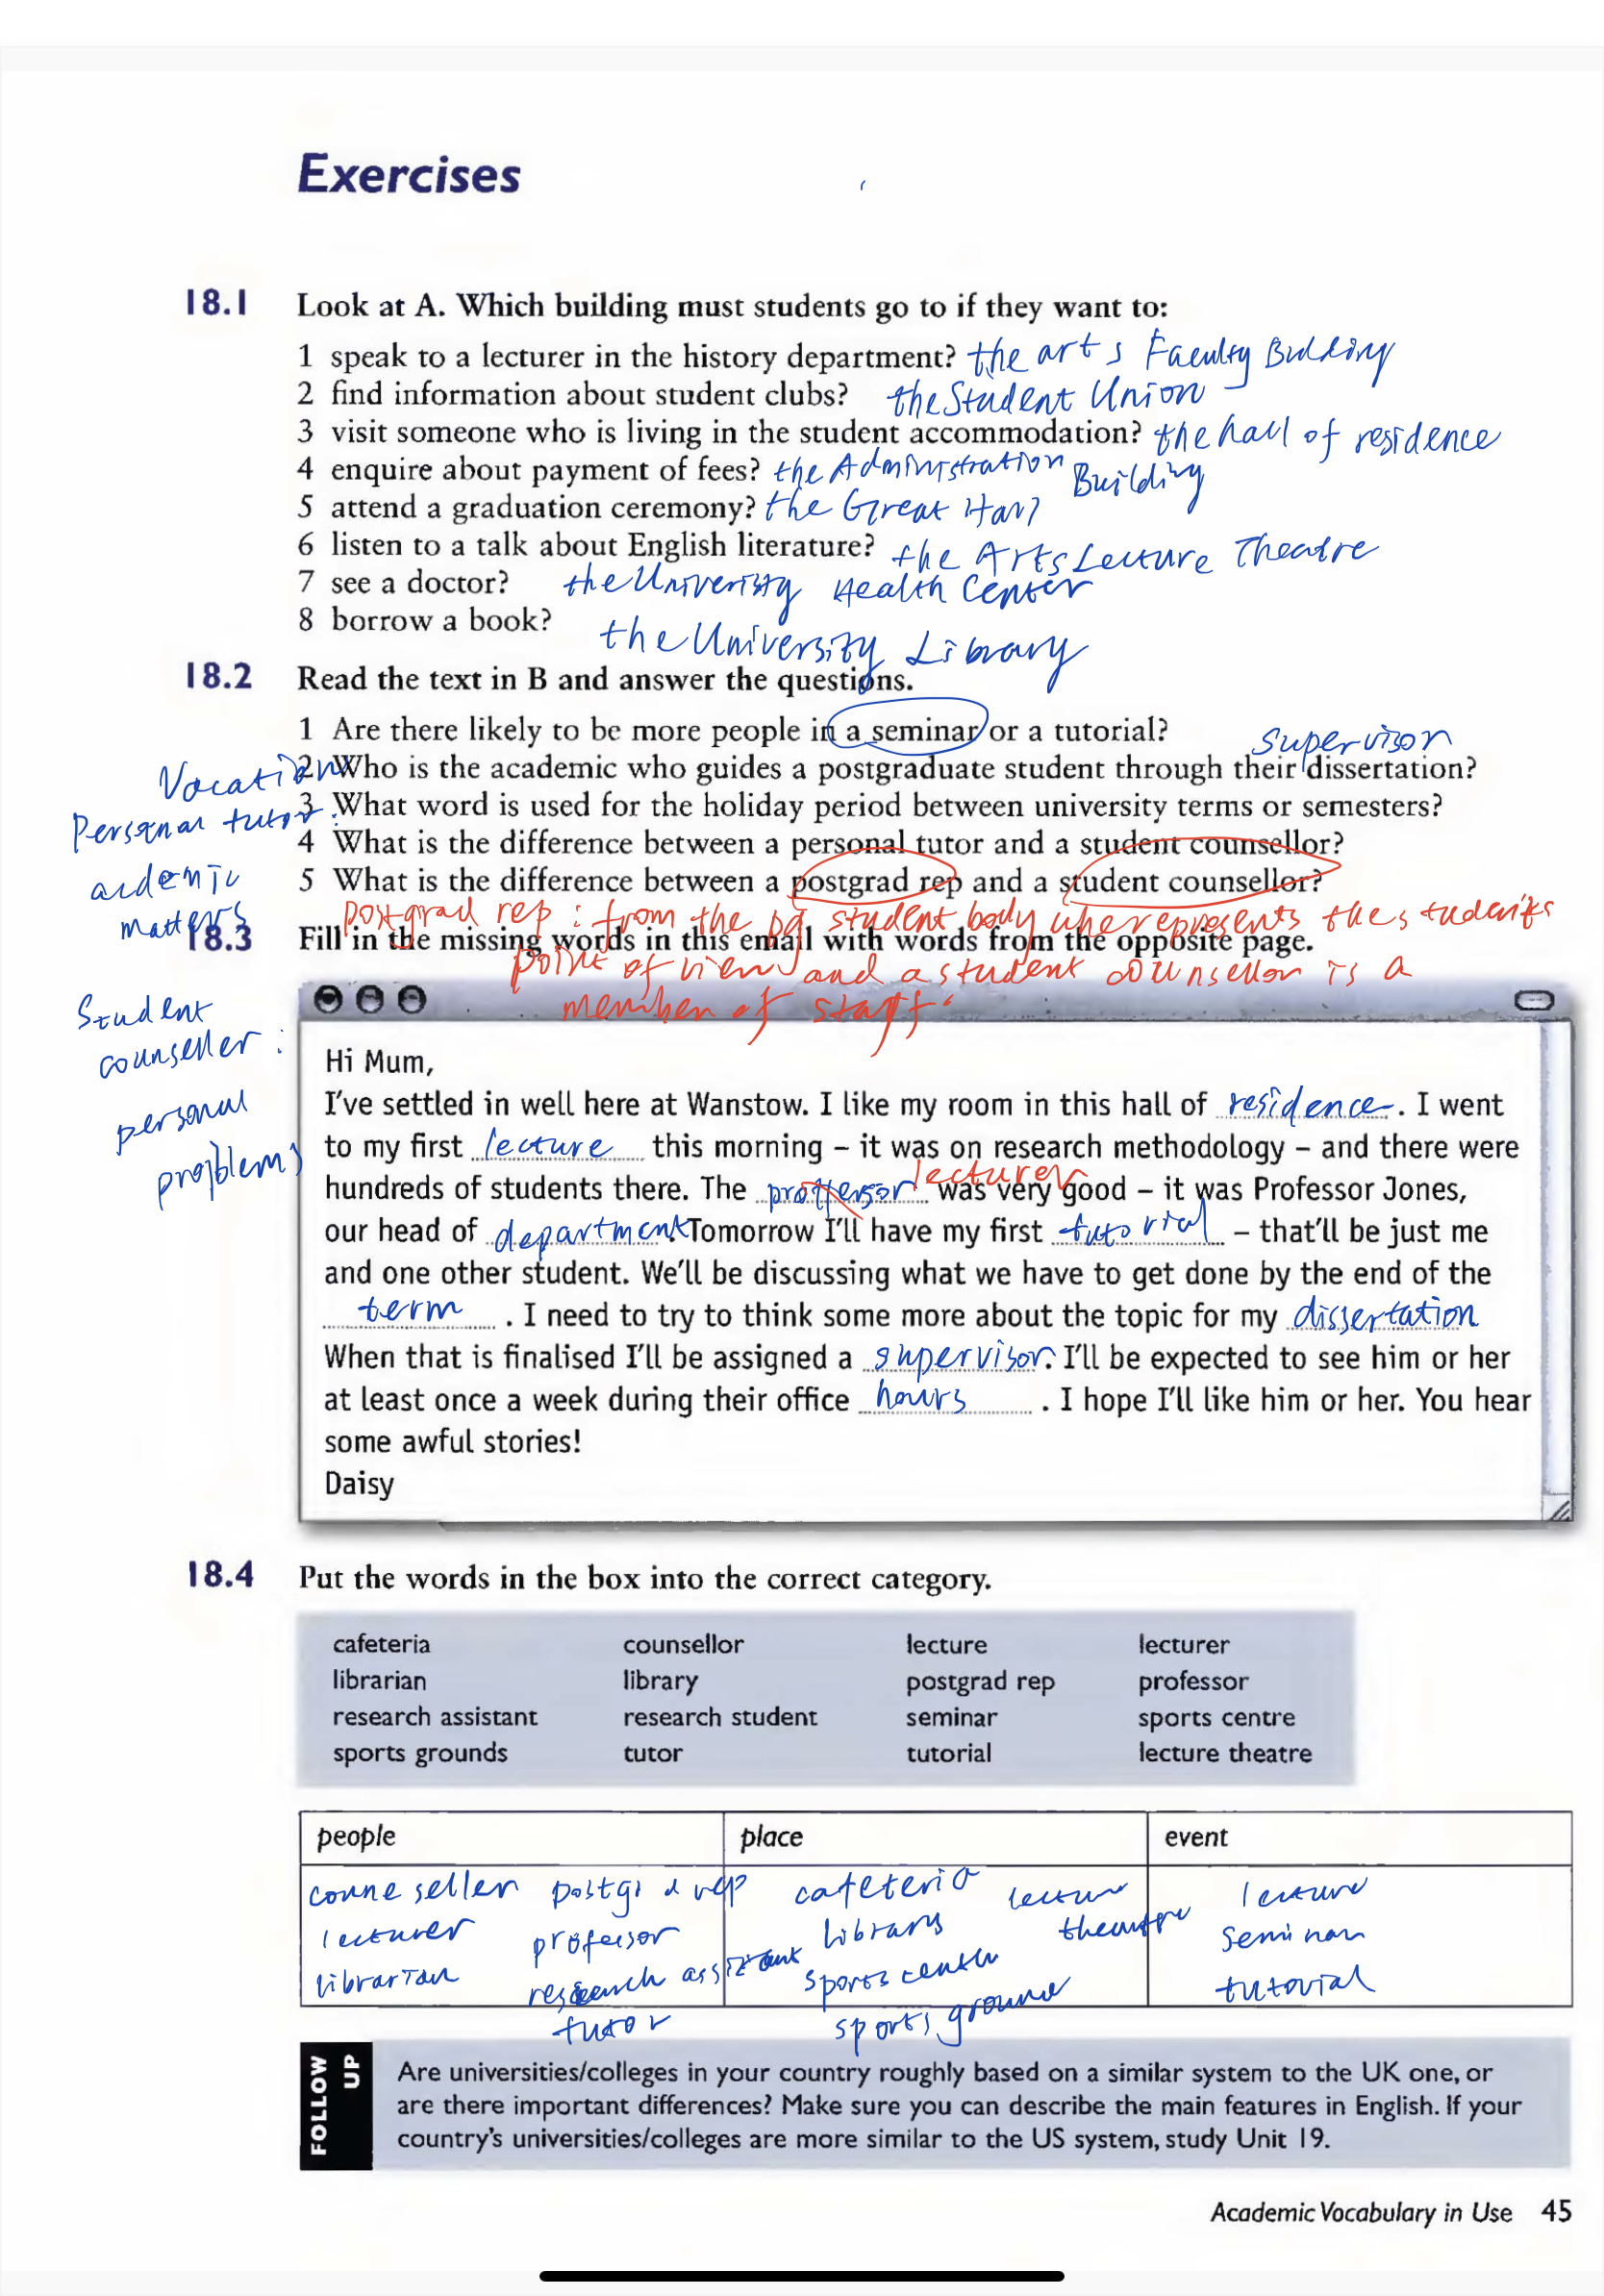 Exercises
18.1 Look at A. Which building must students go to if they want to:
1 speak to a lecturer in the history department? the arts Faculty Building
2 find information about student clubs? the Student Union
3 visit someone who is living in the student accommodation? the hall of residence
4 enquire about payment of fees? the Administration Building
5 attend a graduation ceremony? the Great Hall
6 listen to a talk about English literature? the Arts Lecture Theatre
7 see a doctor? the University Health Center
8 borrow a book? the University Library
18.2 Read the text in B and answer the questions.
1 Are there likely to be more people in a seminar or a tutorial?
supervisor
2 Who is the academic who guides a postgraduate student through their dissertation?
Vocation
3 What word is used for the holiday period between university terms or semesters?
Personal tutor:
4 What is the difference between a personal tutor and a student counsellor?
5 What is the difference between a postgrad rep and a student counsellor?
matters
postgrad rep: from the pg student body who represents the students
point of view and a student counsellor is a
member of staff.
18.3 Fill in the missing words in this email with words from the opposite page.
Student
counseller:
personal
problems
Hi Mum,
I've settled in well here at Wanstow. I like my room in this hall of residence. I went
to my first lecture this morning – it was on research methodology – and there were
hundreds of students there. The proffersor lecturer was very good – it was Professor Jones,
our head of department. Tomorrow I'll have my first tutorial – that'll be just me
and one other student. We'll be discussing what we have to get done by the end of the
term . I need to try to think some more about the topic for my dissertation
When that is finalised I'll be assigned a supervisor. I'll be expected to see him or her
at least once a week during their office hours . I hope I'll like him or her. You hear
some awful stories!
Daisy
18.4 Put the words in the box into the correct category.
cafeteria counsellor lecture lecturer
librarian library postgrad rep professor
research assistant research student seminar sports centre
sports grounds tutor tutorial lecture theatre
people place event
counseller postgrad rep cafeteria lecture theatre lecture
lecturer professor library seminar
librarian research assistant sports centre tutorial
tutor sports ground
FOLLOW UP
Are universities/colleges in your country roughly based on a similar system to the UK one, or
are there important differences? Make sure you can describe the main features in English. If your
country's universities/colleges are more similar to the US system, study Unit 19.
Academic Vocabulary in Use 45